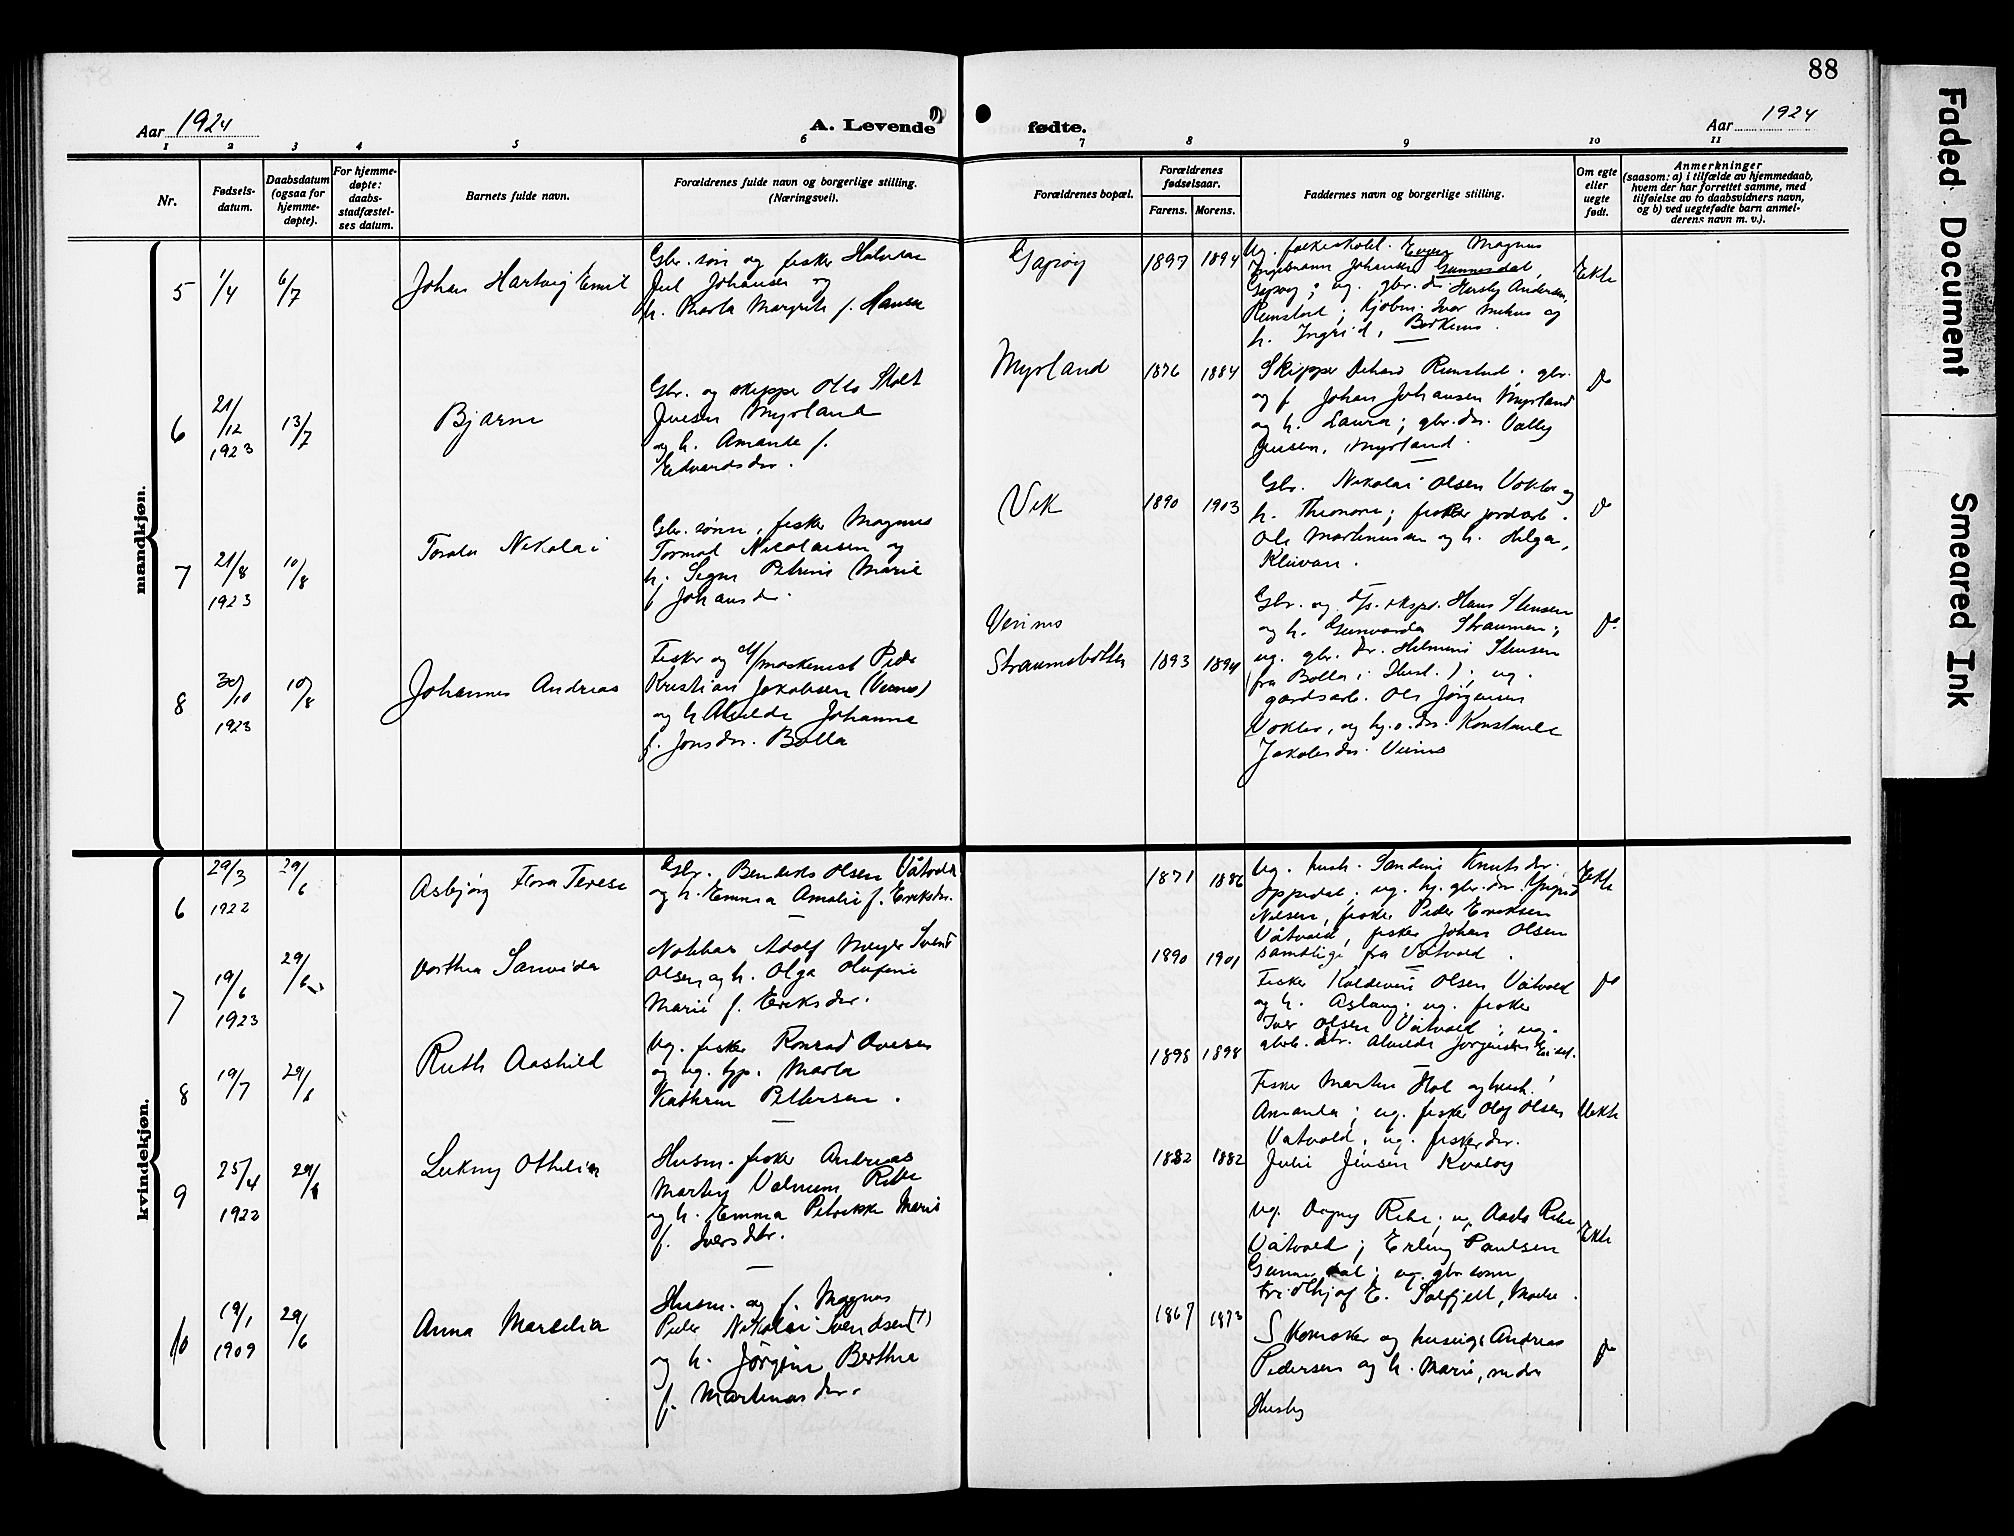 88
Aar 1924
A. Levende
fødte.
Aar 1924
1 2 3 4 5 6 7 8 9 10 11
Nr.
Fødsels-
datum.
Daabsdatum
(ogsaa for
hjemme-
døpte).
For hjemme-
døpte:
daabs-
stadfæstel-
ses datum.
Barnets fulde navn.
Forældrenes fulde navn og borgerlige stilling.
(Næringsvei).
Forældrenes bopæl.
Forældrenes
fødselsaar.
Farens. Morens.
Faddernes navn og borgerlige stilling.
Om egte
eller
uegte
født.
Anmerkninger
(saasom: a) i tilfælde av hjemmedaab,
hvem der har forrettet samme, med
tilføielse av to daabsvidners navn,
og b) ved uegtefødte barn anmel-
derens navn m. v.).
mandkjøn.
5 1/4 6/7
Johan Hartvig Emil
Gbr. søn og fisker
Jul Johansen og
h. Marta Margrete f. Hansen
Gapøy
1897 1894
Magnus
Ingebrigt Johansen
Gapøy; ug. gbr. dr.
h. Ingrid,
Ekte
6 21/12 1923 13/7
Bjarne
Gbr. og skipper Olts Stolt
Jensen Myrland
og h. Amanda f.
Edvardsdr.
Myrland
1876 1884
Skipper Rimstad. gbr.
og f. Johan Johansen Myrland
og h. Laura; gbr. dr. Valley
Jensen, Myrland
do
7 21/8 1923 10/8
Toralv Nikolai
Gbr. sønn, fisker Magnus
Tormod Nicolaisen og
h. Signe Petrine Marie
f. Johansdr.
Vik
1890 1903
Gbr. Nikolai Olsen Vokler og
h. Theonora; fisker jordarb.
Ole Martinussen og h. Helga,
Klüvan.
do
8 30/10 1923 10/8
Johannes Andreas
Fisker og d/maskinist Peder
Kristian Jakobsen (Veines)
og h. Alvilde Johanna
f. Jonsdr. Bolla
Veines
Straumsbotn
1893 1894
Gbr. og d/s. eksp. Hans Stensen
og h. Gunvarda Straumen;
ug. gbr. dr. Helmine Stensen
fra Bolla i ); ug.
gardsarb. Ole Jørgensen
Vokler, og hj. v. dr. Konstanse
Jakobsdr. Veines
do
kvindekjøn.
6 29/3 1922 29/6
Asbjørg Flora Terese
Gbr. Benedikt Olsen Våtvold
og h. Emma Amalie f. Eriksdr.
1871 1886
Ug. hush. Sandine Knutsdr.
Oppedal; ug. hj. gbr. dr. Ingrid
Nilsen, fisker Peder Eriksen
Våtvold, fisker Johan Olsen
samtlige fra Våtvold.
Ekte
7 19/6 1923 29/6
Dorthea Sanvida
Adolf Meyer Svend
Olsen og h. Olga Olufine
Marie f. Eriksdr.
1890 1901
Fisker Koldevin Olsen Våtvold
og h. Aslaug; ug. fisker
Iver Olsen Våtvold; ug.
gbr. dtr. Alvilde Jørgensen
do
8 19/7 29/6
Ruth Aashild
Ug. fisker Konrad Ovesen
og ug. tjp. Marta
Kathrin Pettersen.
1898 1898
Fisker Martin Hol og hush.
Amanda; ug. fisker Olaf Olsen
Våtvold, ug. fiskerdr.
Julie Jensen Kvaløy
Uekte
9 25/4 1922 29/6
Lukny Othelia
Husm. fisker Andreas
Martin Valnum Ribe
og h. Emma Petrikke Marie
f. Iversdtr.
1882 1882
Ug. Dagny Ribe; ug. Aasta Ribe
Våtvold; Erling Paulsen
Gunnesdal; ug. gbr. sønn
Fridthjof E. Solfjell,
Ekte
10 19/1 1909 29/6
Anna Marselia
Husm. og f. Magnus
Peder Nikolai Svendsen (†)
og h. Jørgine Berthea
f. Martinusdr.
1867 1873
Skomaker og huseier Andreas
Pedersen og h. Marie, nedre
Husby
do
Faded Document
Smeared Ink